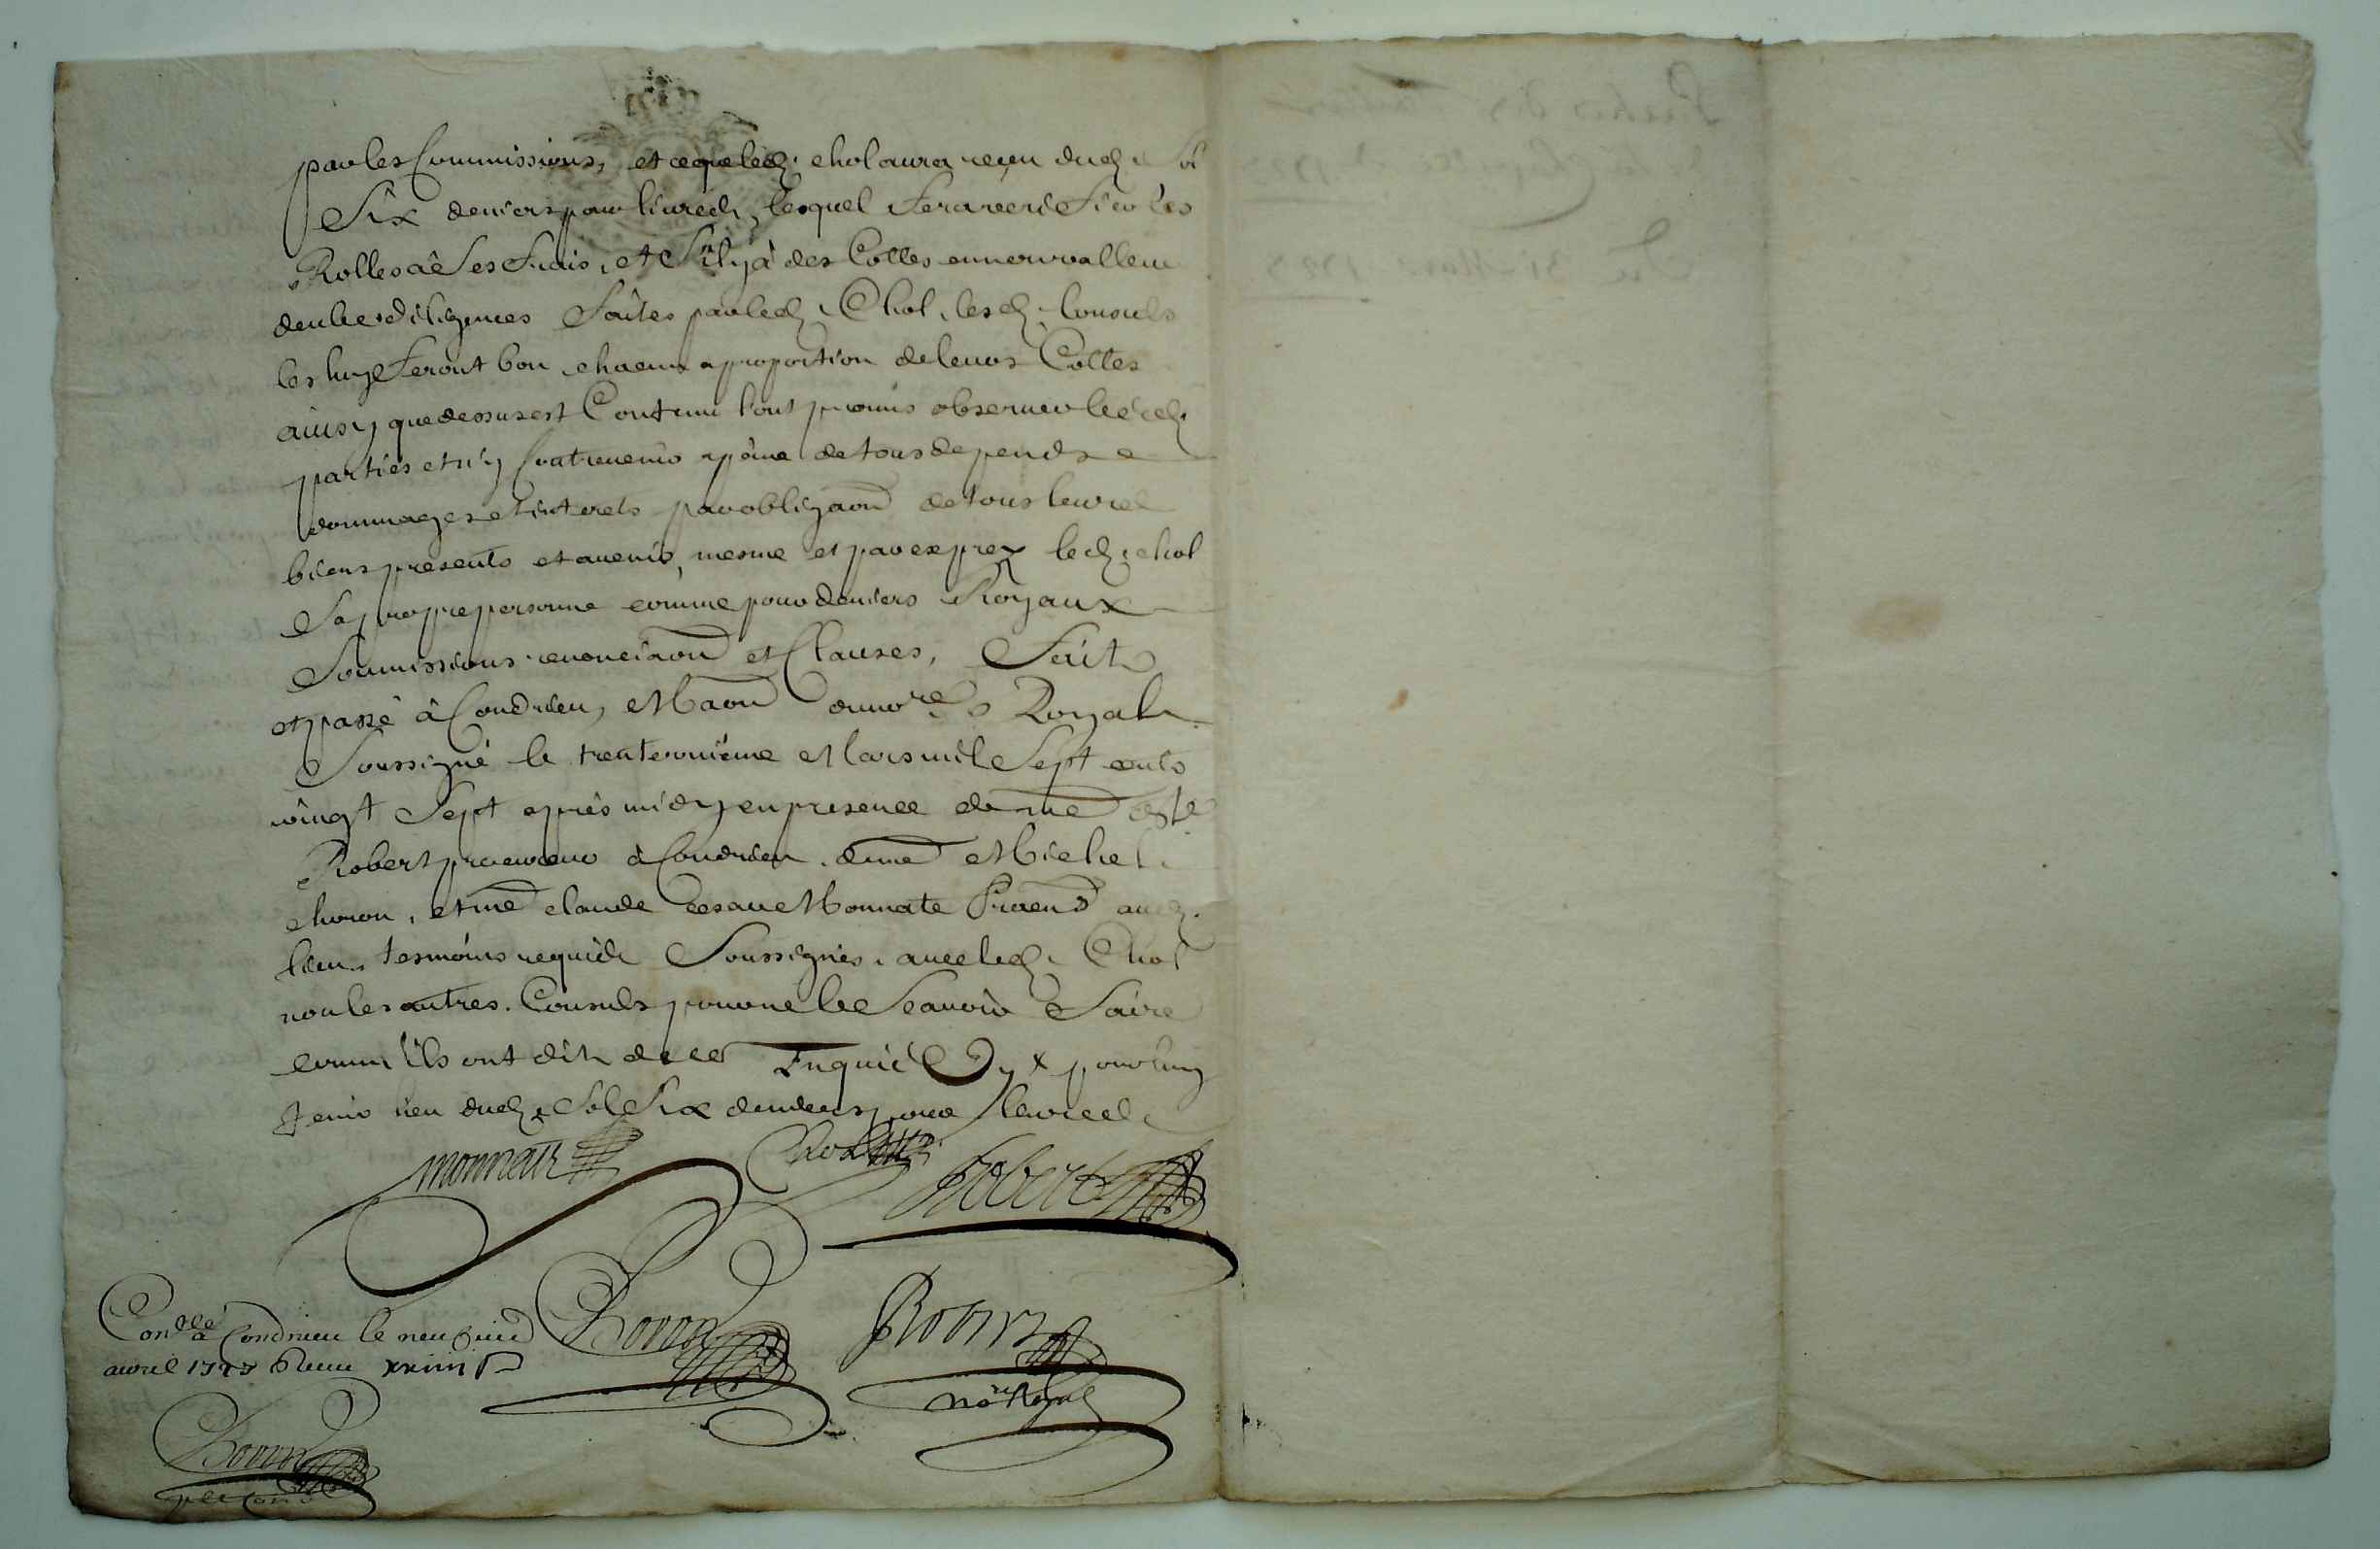 par les Commissions, et ce que led. chol aura reçeu dud. sol
Six deniers pour livre d. lesquel fera veriffier les
Rolles à Ses frais, et S'il y à des Cottes en non valleur
deube diligences faites par led. Chol, lesd. Consuls
les luy feront bon chacun a proportion de leurs Cottes
ainsy que dessus est Contenu l'ont promis observer lesd.
parties et n'y Contrevenir a peine de tous depends
dommages et interets par obligaon de tous leurs
biens presents et avenir, mesme et par exprez led. chol
Sa propre personne comme pour deniers Royaux
Soumissions renonciaon et Clauses, Fait
et passé à Condrieu, Maon du no.re Royal
Soussigné le trente unième Mars mil Sept cents
vingt Sept après midy en presence de me
Robert procureur à Condrieu, de me Michel
choron, et me claude cesar Monnate Procur aud.
lieu tesmoins requis Soussignés, avec led. Chol
non les autres Consuls pour ne le Scavoir faire
comm'ils ont dit de ce Enquis x pour luy
tenir lieu dud. Sol Six deniers pour livre
monnate Chol
Robert
Con.lé à Condrieu le neufvie
avril 1727 Receu xxiiii s
Boron
not. Royal